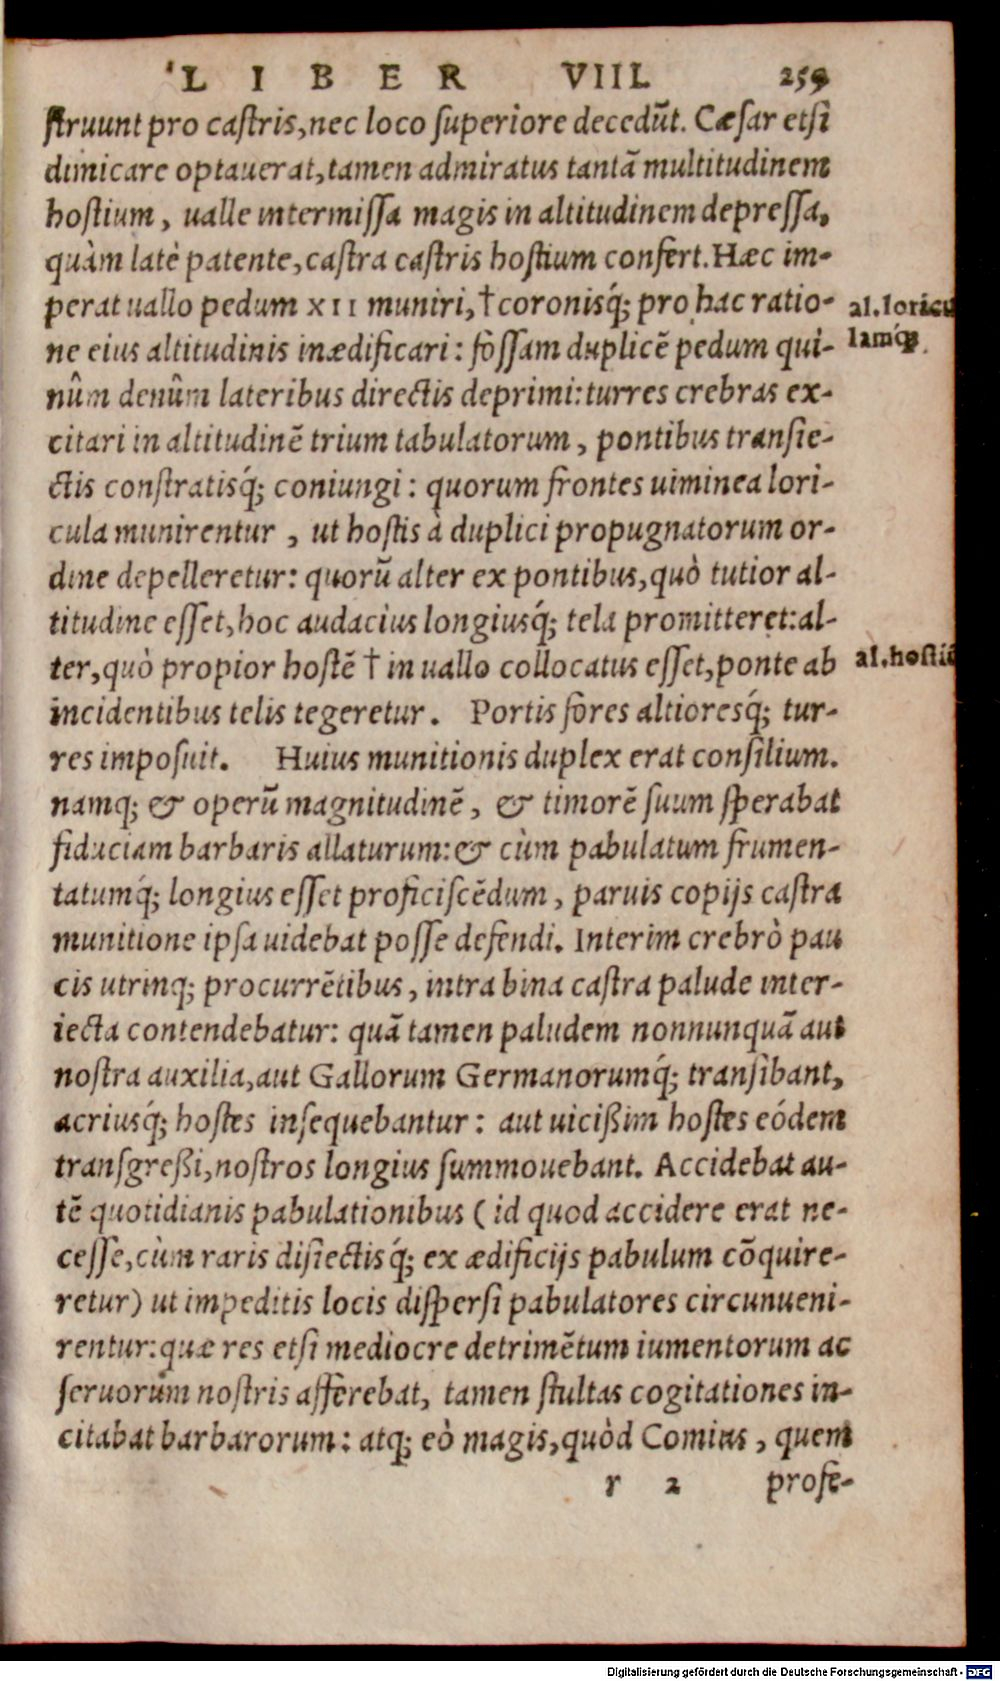 LIBER VIII. 259
struunt pro castris, nec loco superiore decedūt. Cæsar etsi
dimicare optauerat, tamen admiratus tantā multitudinem
hostium, ualle intermissa magis in altitudinem depressa,
quàm latè patente, castra castris hostium confert. Hæc im-
perat uallo pedum XII muniri, † coronisq́; pro hac ratio-
al. loricu
lamq́;
ne eius altitudinis inædificari: fossam duplicē pedum qui-
nûm denûm lateribus directis deprimi: turres crebras ex-
citari in altitudinē trium tabulatorum, pontibus transie-
ctis constratisq́; coniungi: quorum frontes uiminea lori-
cula munirentur, ut hostis à duplici propugnatorum or-
dine depelleretur: quorū alter ex pontibus, quò tutior al-
titudine esset, hoc audacius longiusq́; tela promitteret: al-
ter, quò propior hostē † in uallo collocatus esset, ponte ab
al. hostiū
incidentibus telis tegeretur. Portis fores altioresq́; tur-
res imposuit. Huius munitionis duplex erat consilium.
namq; & operū magnitudinē, & timorē suum sperabat
fiduciam barbaris allaturum: & cùm pabulatum frumen-
tatumq́; longius esset proficiscēdum, paruis copijs castra
munitione ipsa uidebat posse defendi. Interim crebrò pau
cis utrinq; procurrētibus, intra bina castra palude inter-
iecta contendebatur: quā tamen paludem nonnunquā aut
nostra auxilia, aut Gallorum Germanorumq́; transibant,
acriusq́; hostes insequebantur: aut uicißim hostes eódem
transgreßi, nostros longius summouebant. Accidebat au-
tē quotidianis pabulationibus (id quod accidere erat ne-
cesse, cùm raris disiectisq́; ex ædificijs pabulum cōquire-
retur) ut impeditis locis dispersi pabulatores circunueni-
rentur: quæ res etsi mediocre detrimētum iumentorum ac
seruorum nostris afferebat, tamen stultas cogitationes in-
citabat barbarorum: atq; eò magis, quòd Comius, quem
r 2 profe-
Digitalisierung gefördert durch die Deutsche Forschungsgemeinschaft - DFG